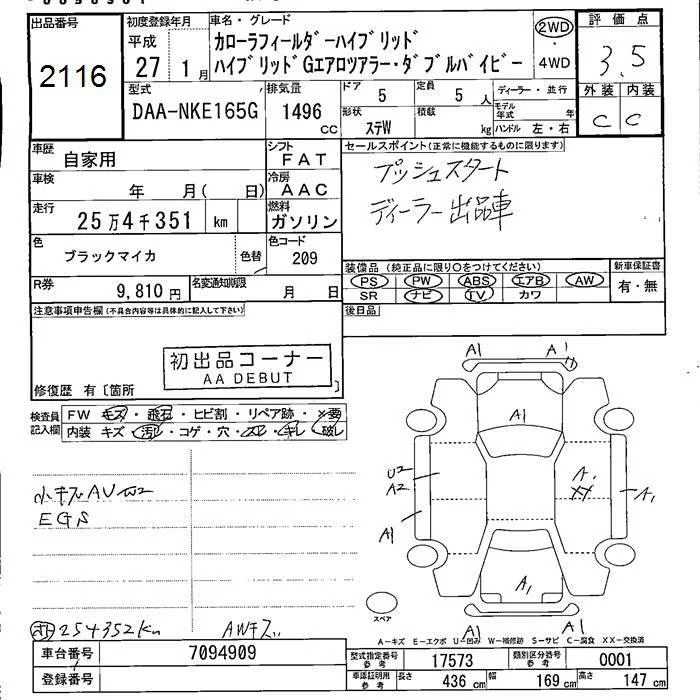 出品番号
2116
初度登録年月
平成
27 1月
車名・グレード
カローラフィールダーハイブリッド
ハイブリッドGエアロツアラー・ダブルバイビー
2WD
・
4WD
評価点
3.5
外装 内装
C C
型式
DAA-NKE165G
排気量
1496
cc
ドア
5
定員
5人
形状
ステW
積載
kg
ディーラー・並行
モデル年式 年
ハンドル 左・右
車歴
自家用
シフト
FAT
車検
年 月( 日)
冷房
AAC
走行
25万4千351 km
燃料
ガソリン
色
ブラックマイカ
色替
色コード
209
R券
9,810円
名変通知期限
月 日
セールスポイント(正常に機能するものに限ります)
プッシュスタート
ディーラー出品車
装備品(純正品に限り○をつけてください)
PS PW ABS エアB AW
SR ナビ TV カワ
新車保証書
有・無
後日品
注意事項申告欄(不具合内容等は具体的に記入して下さい)
初出品コーナー
AA DEBUT
修復歴 有〔箇所 〕
検査員
記入欄
FW キズ・飛石・ヒビ割・リペア跡・×要
内装 キズ・汚れ・コゲ・穴・スレ・キレ・破レ
小キズAU
EGS
254352km
AWキズ
A1 A1
A1
U2
A2
A1
A1
XX
A1
A1
A1 A1
スペア
A-キズ E-エクボ U-凹み W-補修跡 S-サビ C-腐食 XX-交換済
車台番号
7094909
登録番号
型式指定番号
参考
17573
類別区分番号
参考
0001
車検証明用
参考
長さ 436cm 幅 169cm 高さ 147cm